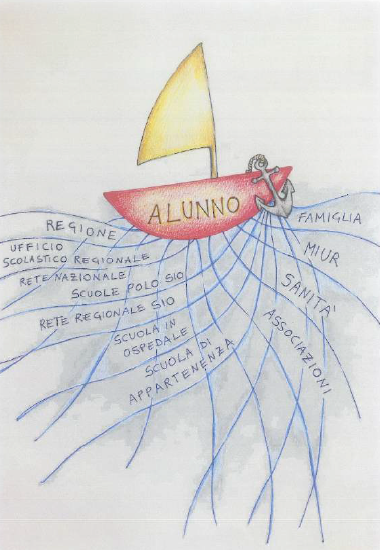 ALUNNO
FAMIGLIA
REGIONE
MIUR
UFFICIO
SCOLASTICO REGIONALE
RETE NAZIONALE
SANITA'
SCUOLE POLO SIO
RETE REGIONALE SIO
ASSOCIAZIONI
SCUOLA IN
OSPEDALE
SCUOLA DI
APPARTENENZA